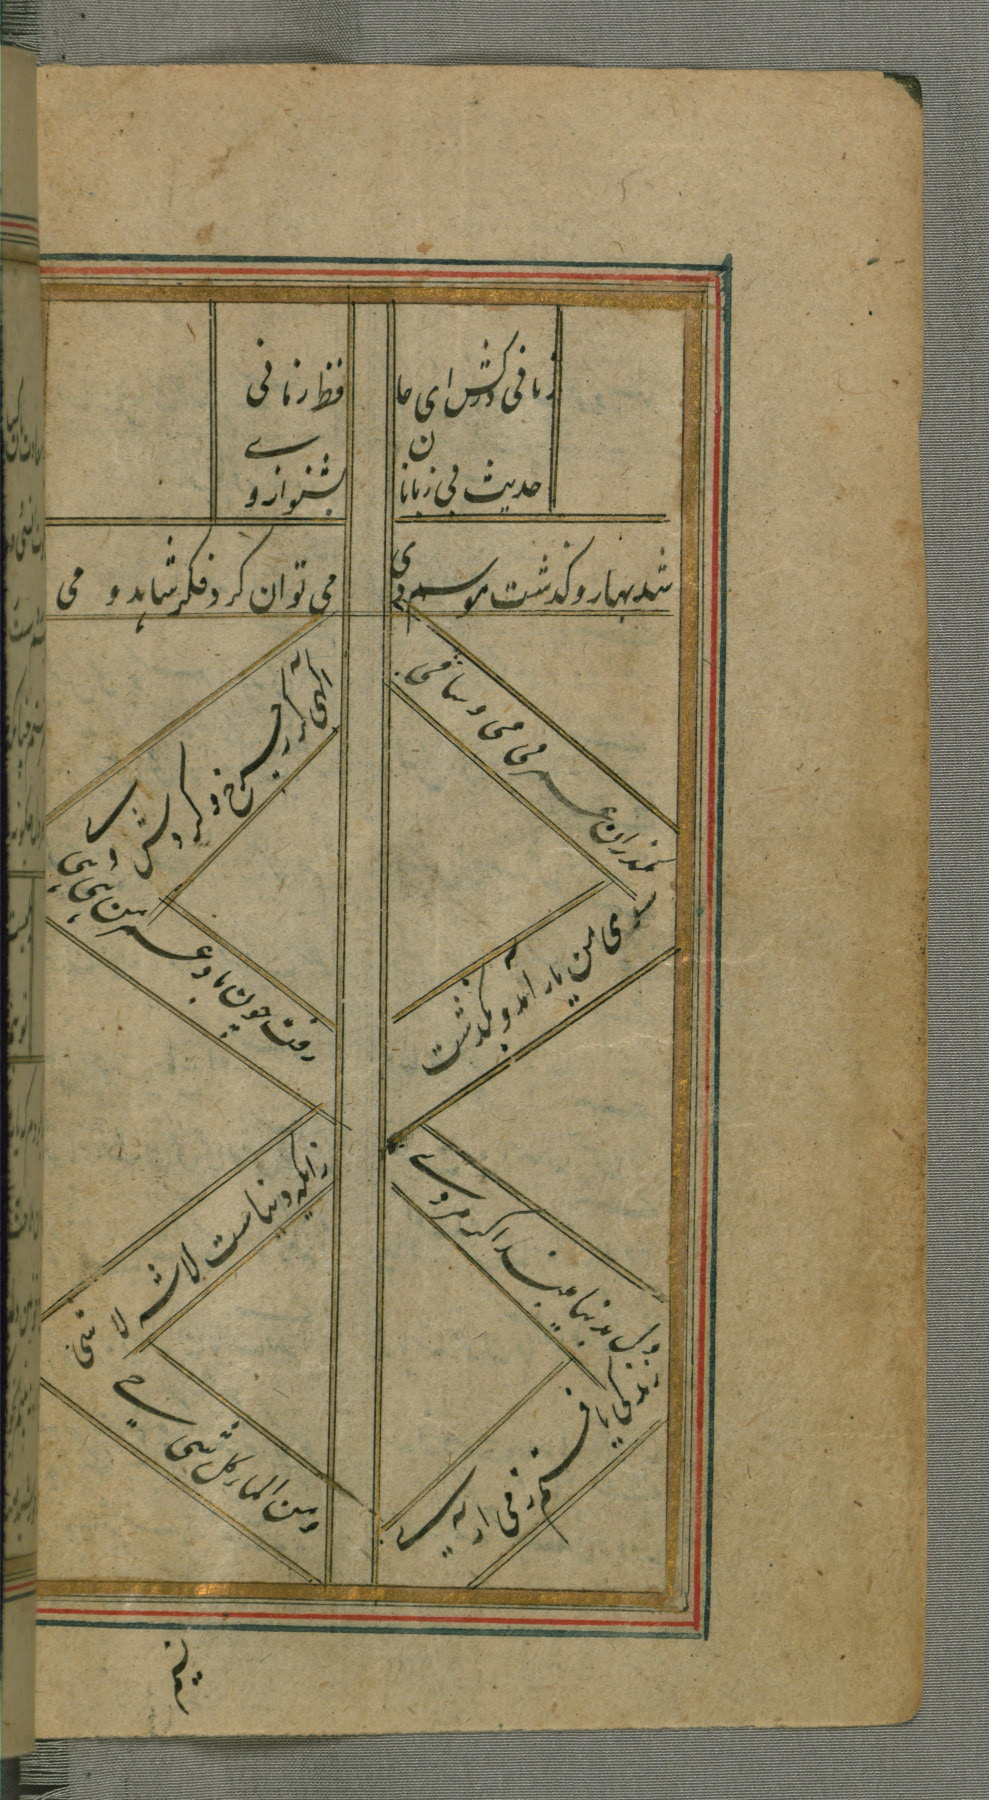 زمانی درکش ای حا
ن
فظ زمانی
حدیث بی زبانان
بشنو از و
شد بهار و گذشت موسم دی
می توان کرد فکر شاهد و می
مگذران عمر بی می و ساقی
سوی من یار آمد و بگذشت
رفت چون باد عمر من هی هی
دل بدنیا مبند اگر مردی
زانکه دنیاست لاشه لا شی
زندگی یافتم ز می اری
و من الماء کل شی حی